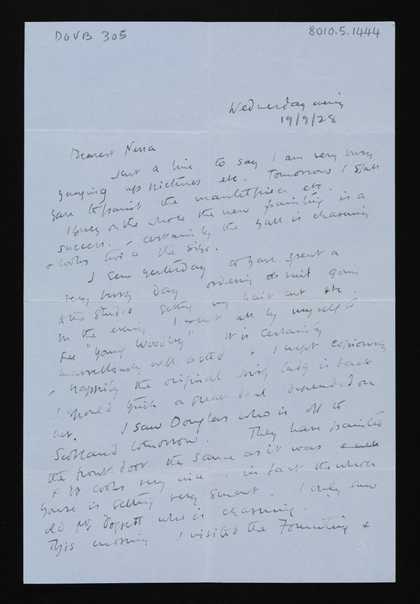 DOVB 305
8010.5.1444
Wednesday evening
19/9/28
Dearest Nessa
Just a line to say I am very busy
hanging up pictures etc. Tomorrow I shall
have to paint the mantelpiece etc.
I think on the whole the new painting is a
success. certainly the hall is charming
& looks twice the size.
I seem yesterday to have spent a
very busy day ordering a suit going
to the studio getting my hair cut etc.
In the evening I went all by myself to
see "Young Woodley" It is certainly
marvellously well acted & I wept copiously
happily the original is back
I should think a great deal depended on
her. I saw Douglas who is off to
Scotland tomorrow. They have painted
the front door the same as it was
& it looks very nice in fact the whole
house is getting very smart. I only saw
old Mr who is charming.
This morning I visited the &